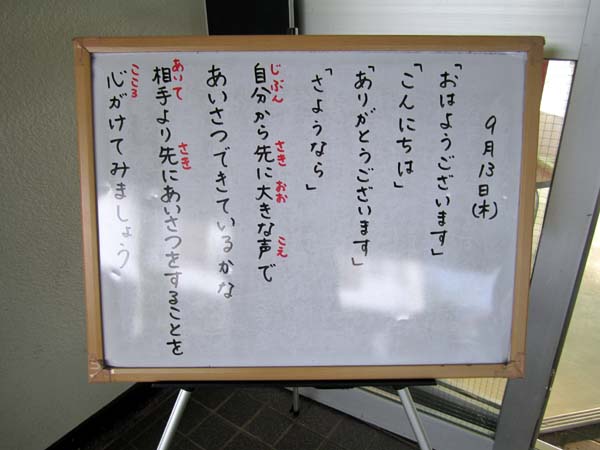 9月13日(木)
「おはようございます」
「こんにちは」
「ありがとうございます」
「さようなら」
じぶん さき おお こえ
自分から先に大きな声で
あいさつできているかな
あいて さき
相手より先にあいさつをすることを
こころ
心がけてみましょう